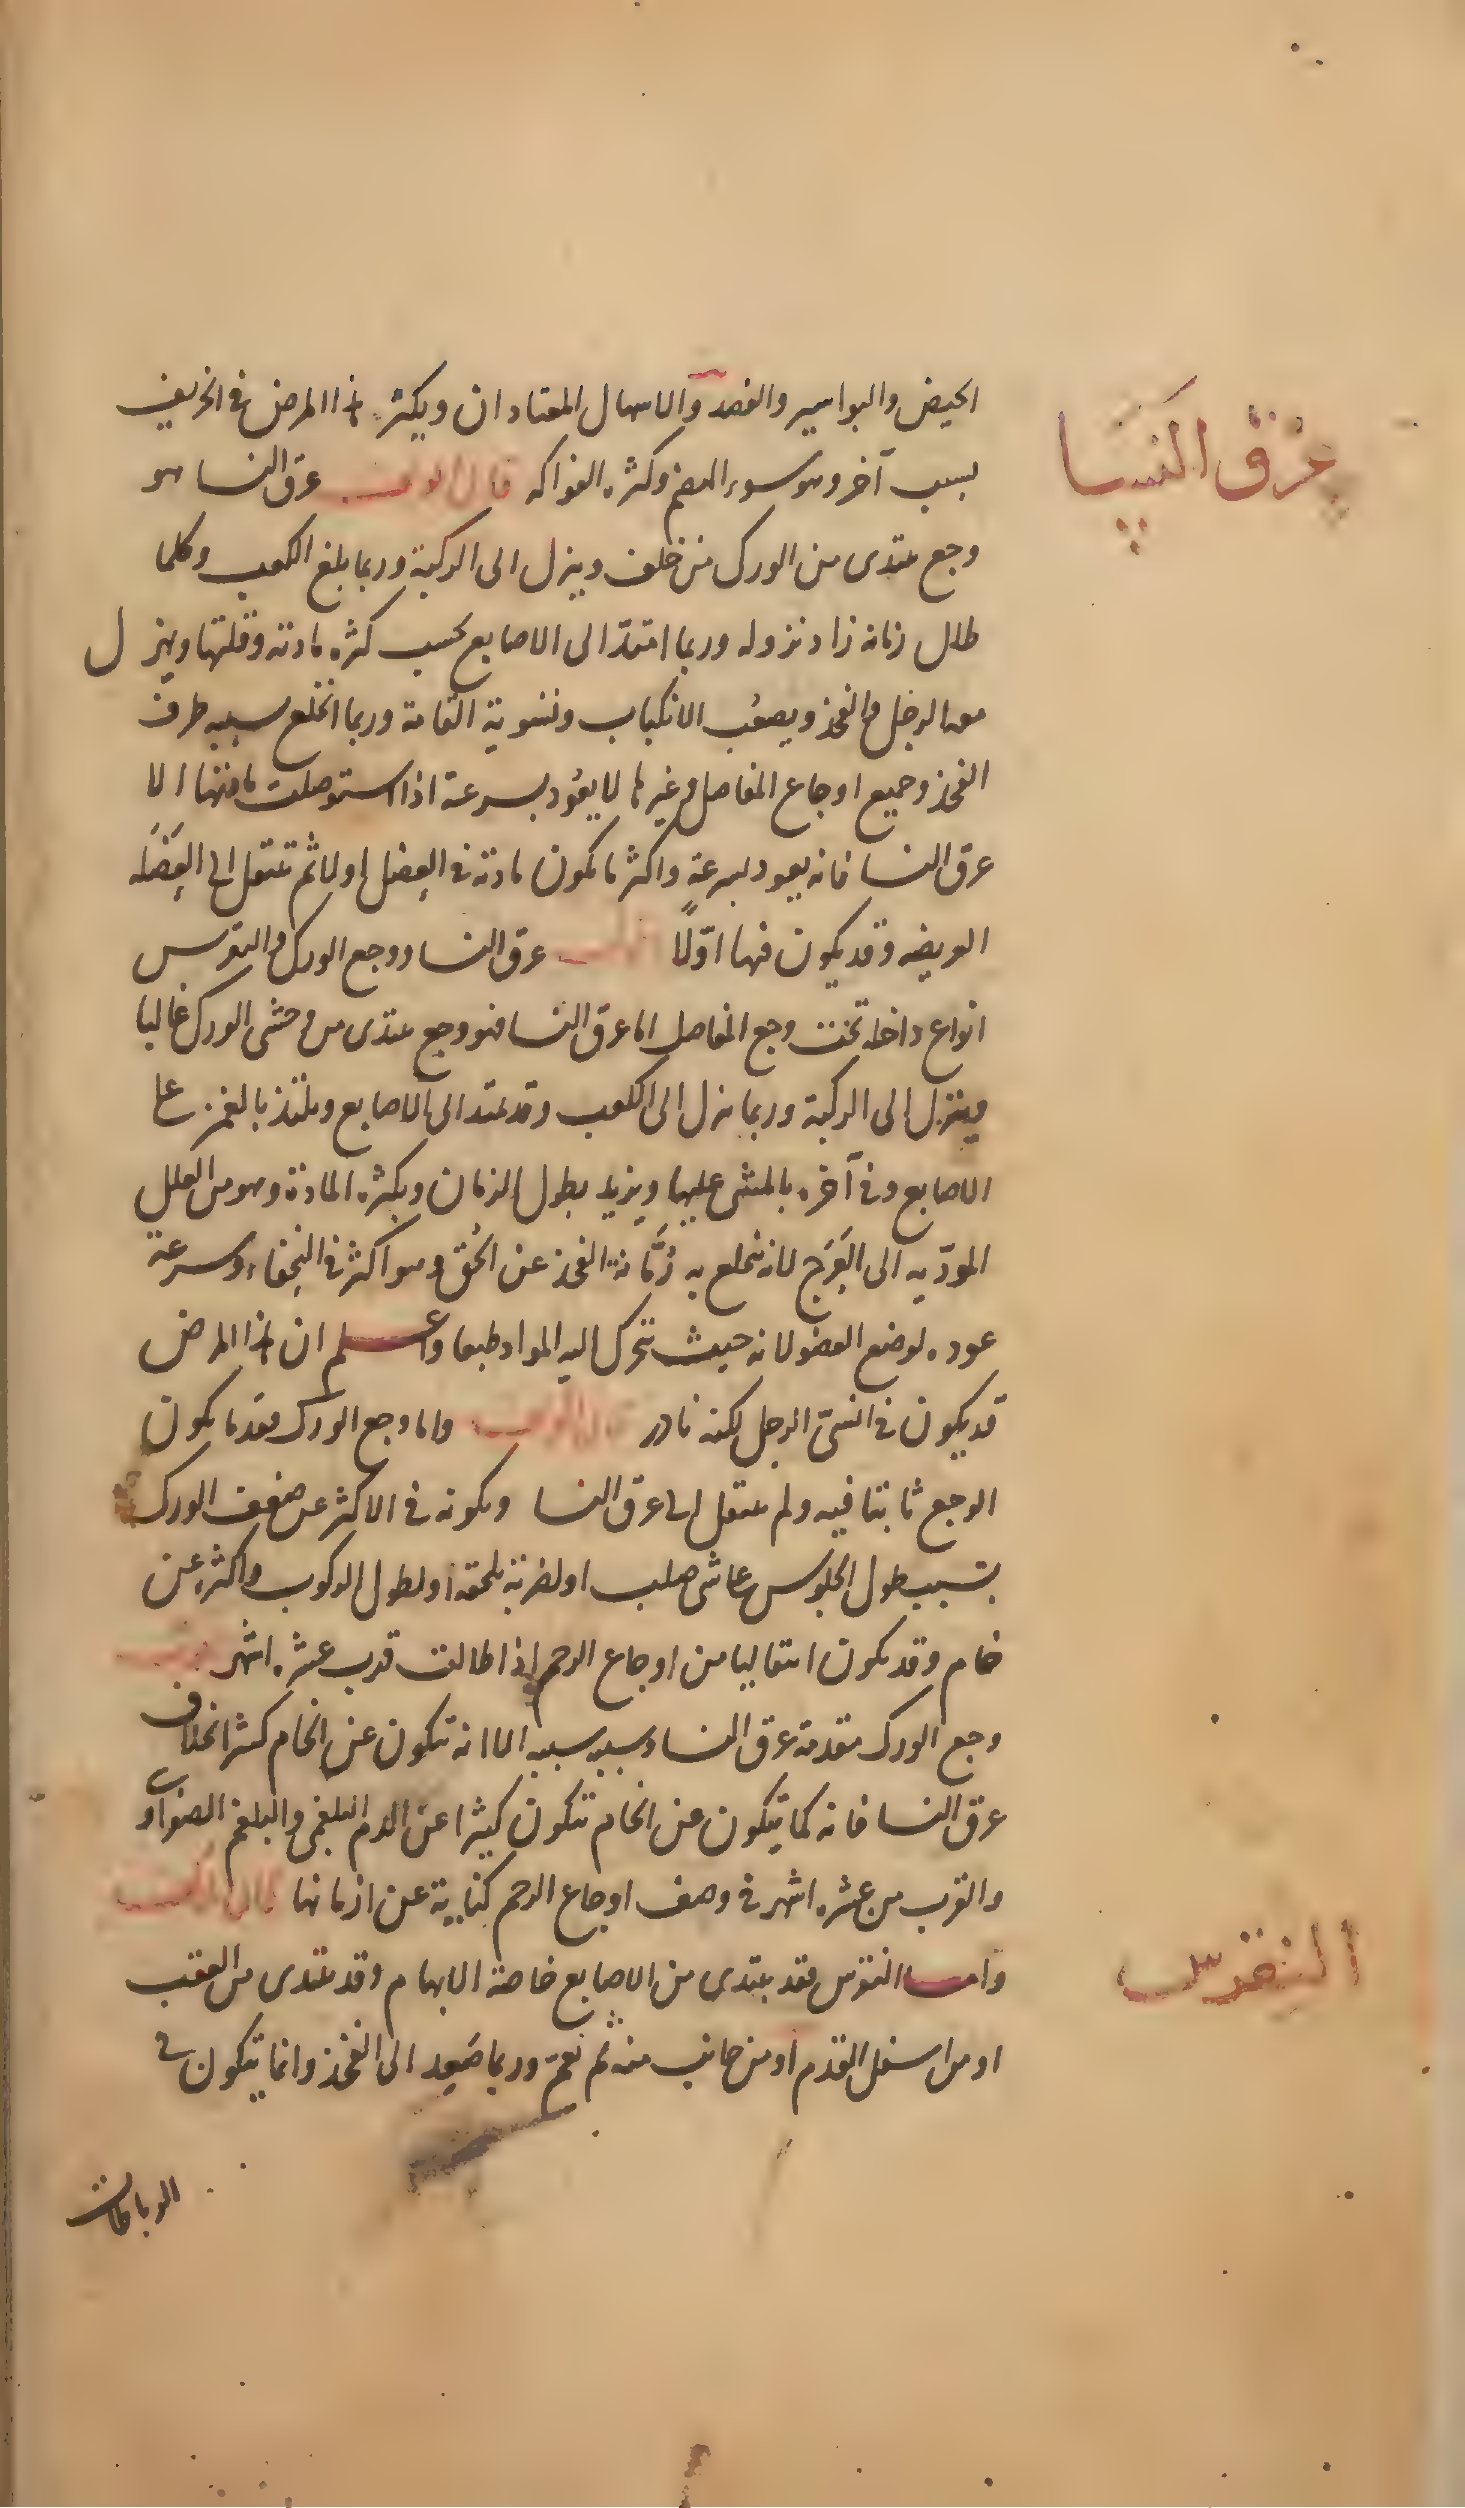 الحيض والبواسير والفصد والاسهال المعتادان ويكثر هذا المرض فى الخريف
عرق النسا
بسبب آخر وهو سوء الهضم وكثرة الفواكه قال المؤلف عرق النسا هو
وجع يبتدى من الورك من خلف وينزل الى الركبة وربما بلغ الكعب وكلما
طال زمانه زاد نزوله وربما امتدّ الى الاصابع بحسب كثرة مادته وقلتها ويهزل
معه الرجل والفخذ ويصعُب الانكباب وتسوية القامة وربما انخلع بسببه طرف
الفخذ وجميع اوجاع المفاصل وغيرها لا يعُود بسرعة اذا استوصلت مادتها الا
عرق النسا فانه يعود بسرعة واكثر ما يكون مادته فى المفصل اولا ثم تنتقل الى العَضَله
العريضه وقد يكون فيها اوّلًا عرق النسا ووجع الورك والنقرس
انواع داخله تحت وجع المفاصل اما عرق النسا فهو وجع يبتدى من وحشى الورك غالبا
وينزل الى الركبة وربما نزل الى الكعب وقد يمتد الى الاصابع ويلتذ بالغمز على
الاصابع وفى آخره بالمشى عليها ويزيد بطول الزمان وبكثرة المادة وهو من العلل
المودّيه الى العَرَج لانه ينخلع به رُمَّانة الفخذ عن الحُق وهو اكثر فى النحفاء وسرعة
عوده لوضع العضو لانه حيث تتحرك اليه المواد طبعا واعلم ان هذا المرض
قد يكون فى انسىّ الرجل لكنه نادر قال المؤلف واما وجع الورك فقد ما يكون
الوجع ثابتا فيه ولم ينتقل الى عرق النسا ويكونه فى الاكثر عن ضعف الورك
بسبب طول الجلوس على شى صلب او لضربة تلحقه او لطول الركوب واكثره عن
خام وقد يكون انتقاليا من اوجاع الرحم اذا طالت قرب عشرة اشهر
وجع الورك مقدمة عرق النسا وسببه سببه الا انه يتكون عن الخام كثيرا بخلاف
عرق النسا فانه كما يتكون عن الخام يتكون كثيرا عن الدم البلغمى والبلغم الصفراوى
والقرب من عشرة اشهر فى وصف اوجاع الرحم كناية عن ازمانها قال المؤلف
النقرس
واما النقرس فقد يبتدى من الاصابع خاصة الابهام وقد يبتدى من العقب
او من اسفل القدم او من جانب منه ثم تعمّ وربما صَعِد الى الفخذ وانما يتكون فى
الرباطات